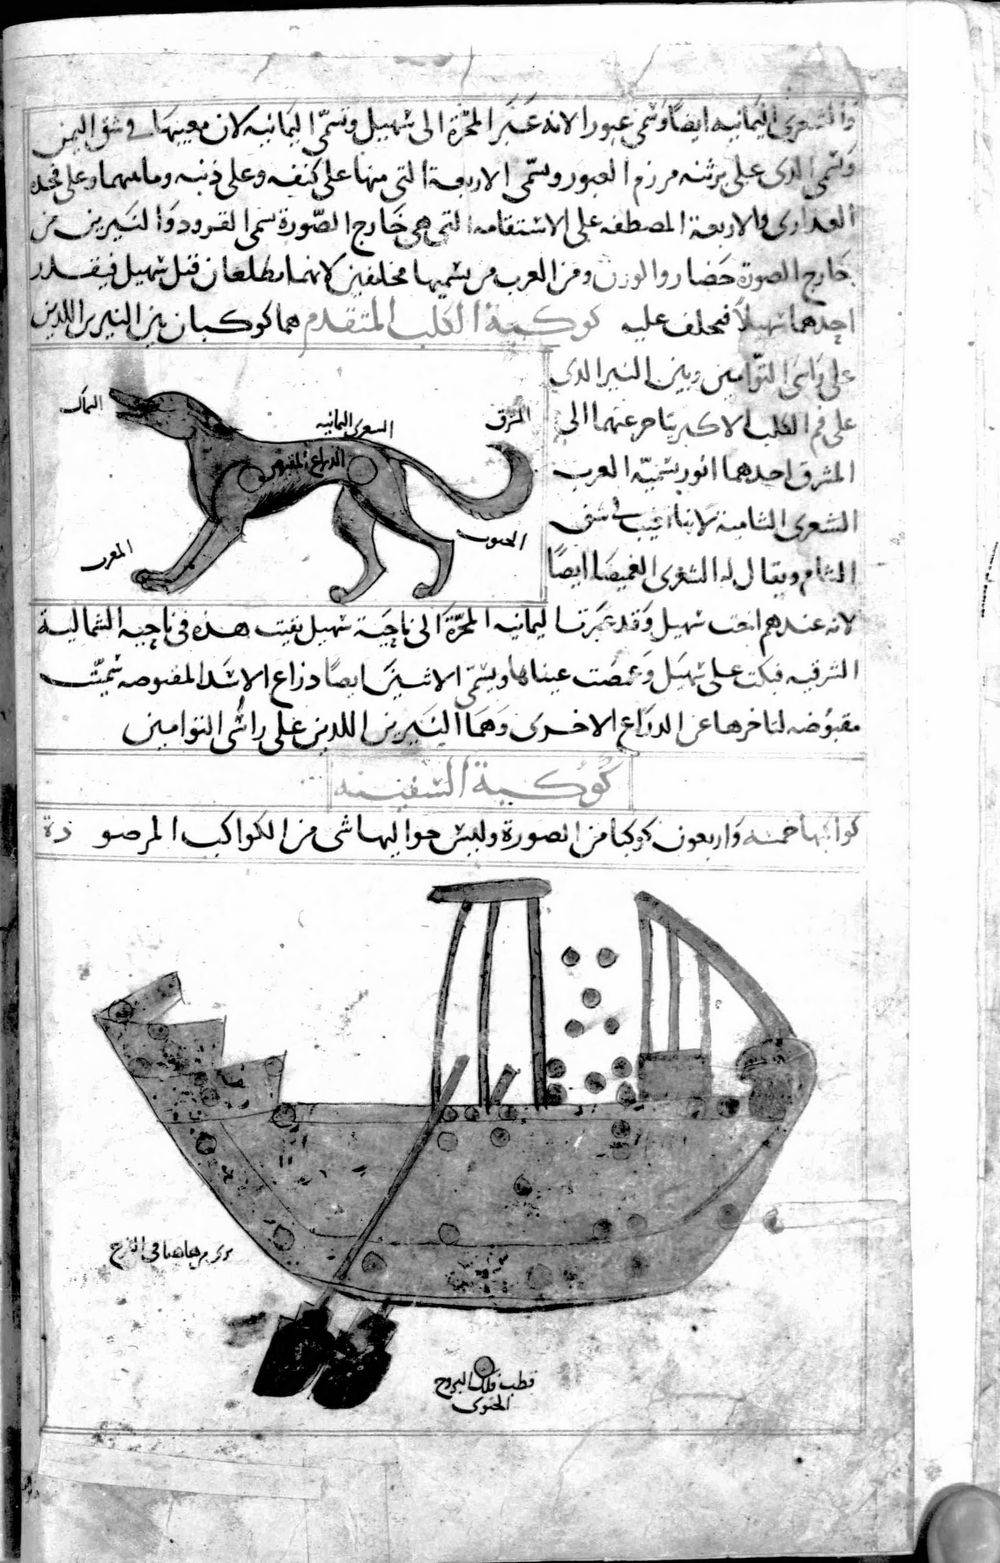 والشعرى اليمانيه ايضا وتسمى عبورا لانه عبر المجرة الى سهيل وتسمى اليمانيه لان مغيبها فى شق اليمن
وتسمى الذى على برثنه مرزم العبور وتسمى الاربعة التى منها على كتفه وعلى ذنبه وما بينهما وعلى فخذه
العذارى والاربعة المصطفه على الاستقامه التى هى خارج الصورة تسمى القرود والنيرين من
خارج الصورة حضار والوزن ومن العرب من يسميها محلفين لانهما يطلعان قبل سهيل فيقدر
احدهما سهيلا فيحلف عليه كوكبة الكلب المتقدم هما كوكبان بين النيرين اللذين
على راسى التوامين وبين النير الذى
على فم الكلب الاكبر يتاخر عنهما الى
المشرق احدهما انور يسميه العرب
الشعرى الشامية لانها تغيب فى شق
الشام ويقال له الشعرى الغميصا ايضا
الشمال
الشعرى اليمانيه
المشرق
الذراع المقبوض
المغرب
الجنوب
لانه عندهم اخت سهيل وقد عبرت اليمانيه المجرة الى ناحية سهيل بقيت هذه فى ناحيه الشمالية
الشرقيه فبكت على سهيل وغمصت عيناها ويسمى الاثنين ايضا ذراع الاسد المقبوضه سميت
مقبوضه لتاخرها عن الذراع الاخرى وهما النيرين اللذين على راسى التوامين
كوكبة السفينه
كواكبها خمسه واربعون كوكبا من الصورة وليس حواليها شى من الكواكب المرصودة
قطب فلك البروج
الجنوبى